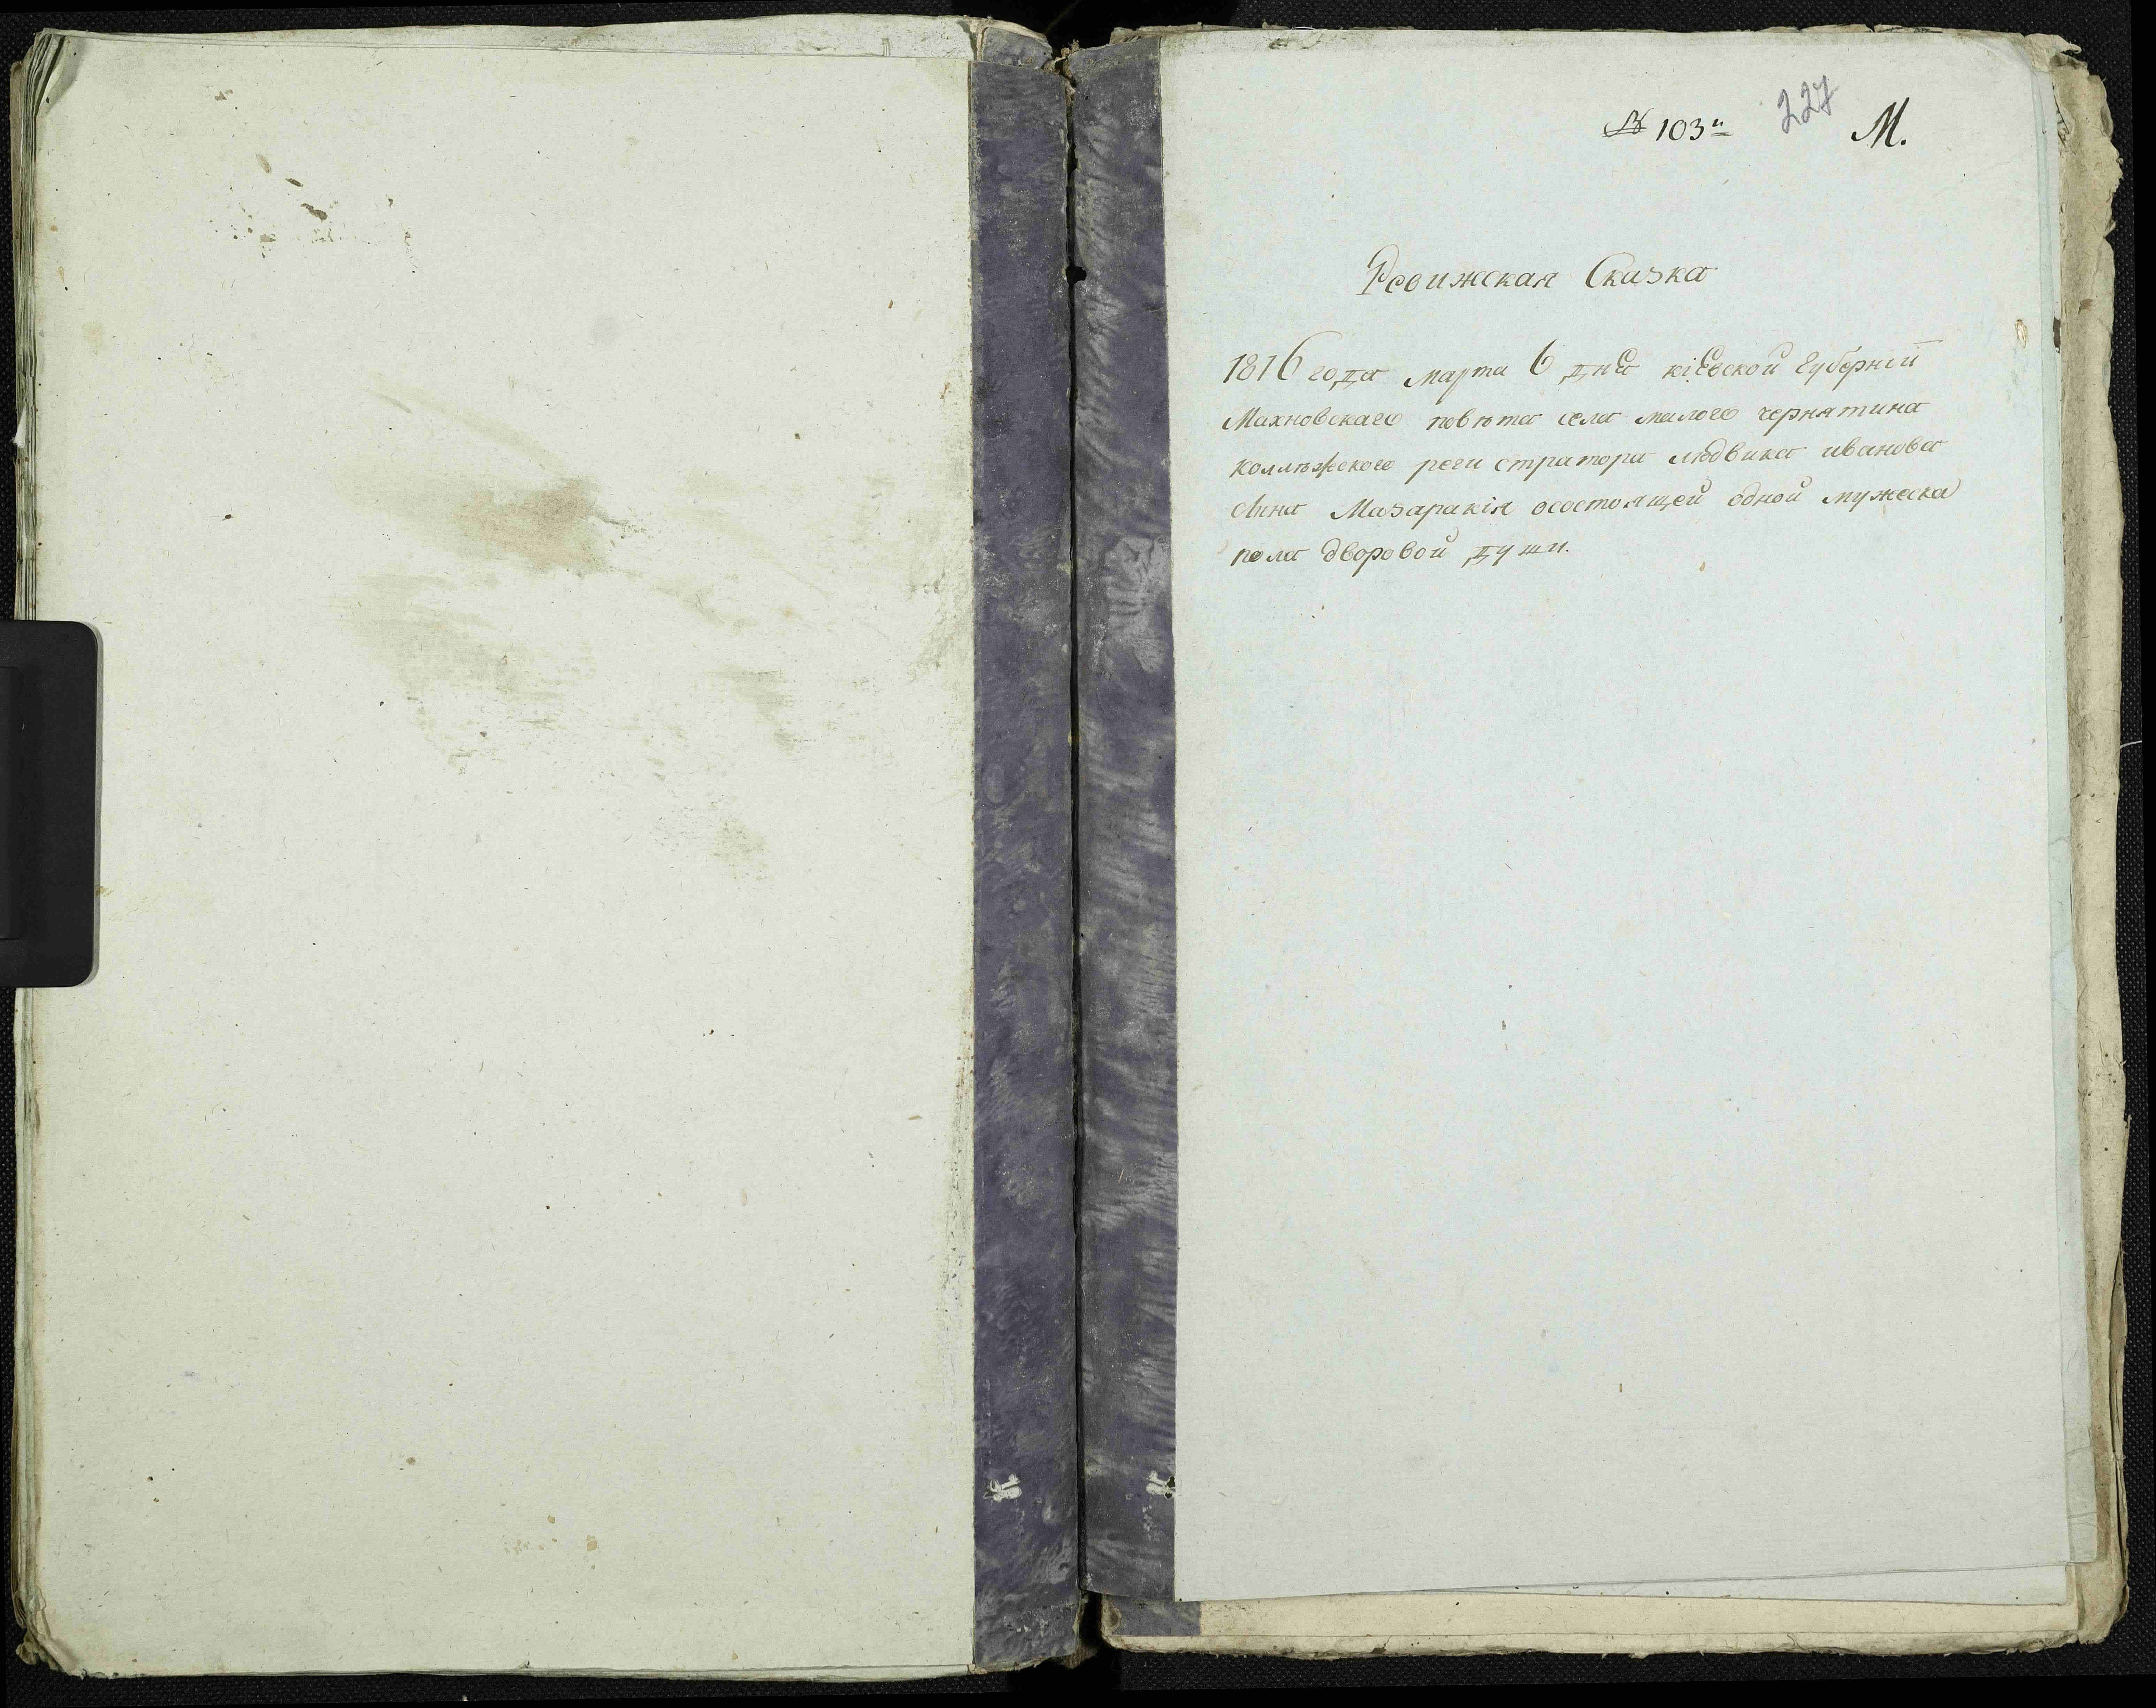 № 103й 227 М.
Ревижская Сказка
1816 года марта 6 дня кіевской губерніи
Махновскаго повѣта села малого чернятина
коллѣжского регистратора людвика иванова
сына Мазаракія осостоящей одной мужеска
пола дворовой души.